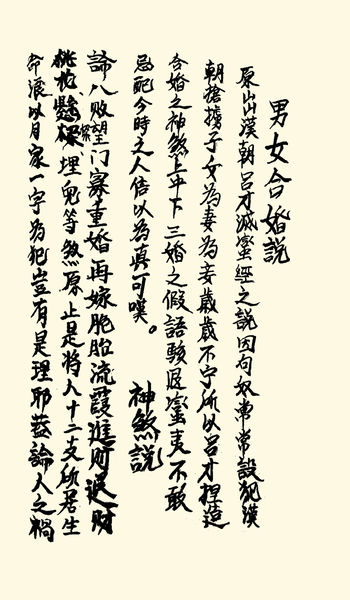 男女合婚説
原出漢朝呂才滅蛮經之説因匈奴常常設犯漢
朝搶擄子女為妻為妾歲歲不宁所以呂才捏造
合婚之神煞上中下三婚之假語駭退蛮夷不敢
忌配今時之人信以為真可嘆。
神煞説
論八敗望门寡重婚再嫁胞胎流霞進财退财
桃花懸樑埋兒等煞原止是将人十二支所居生
命浪以月家一字為犯豈有是理耶蓋論人之禍